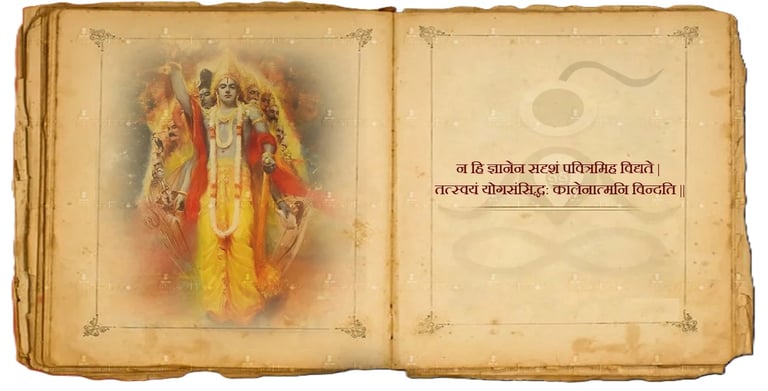 न हि ज्ञानेन सदृशं पवित्रमिह विद्यते |
तत्स्वयं योगसंसिद्धः कालेनात्मनि विन्दति ||